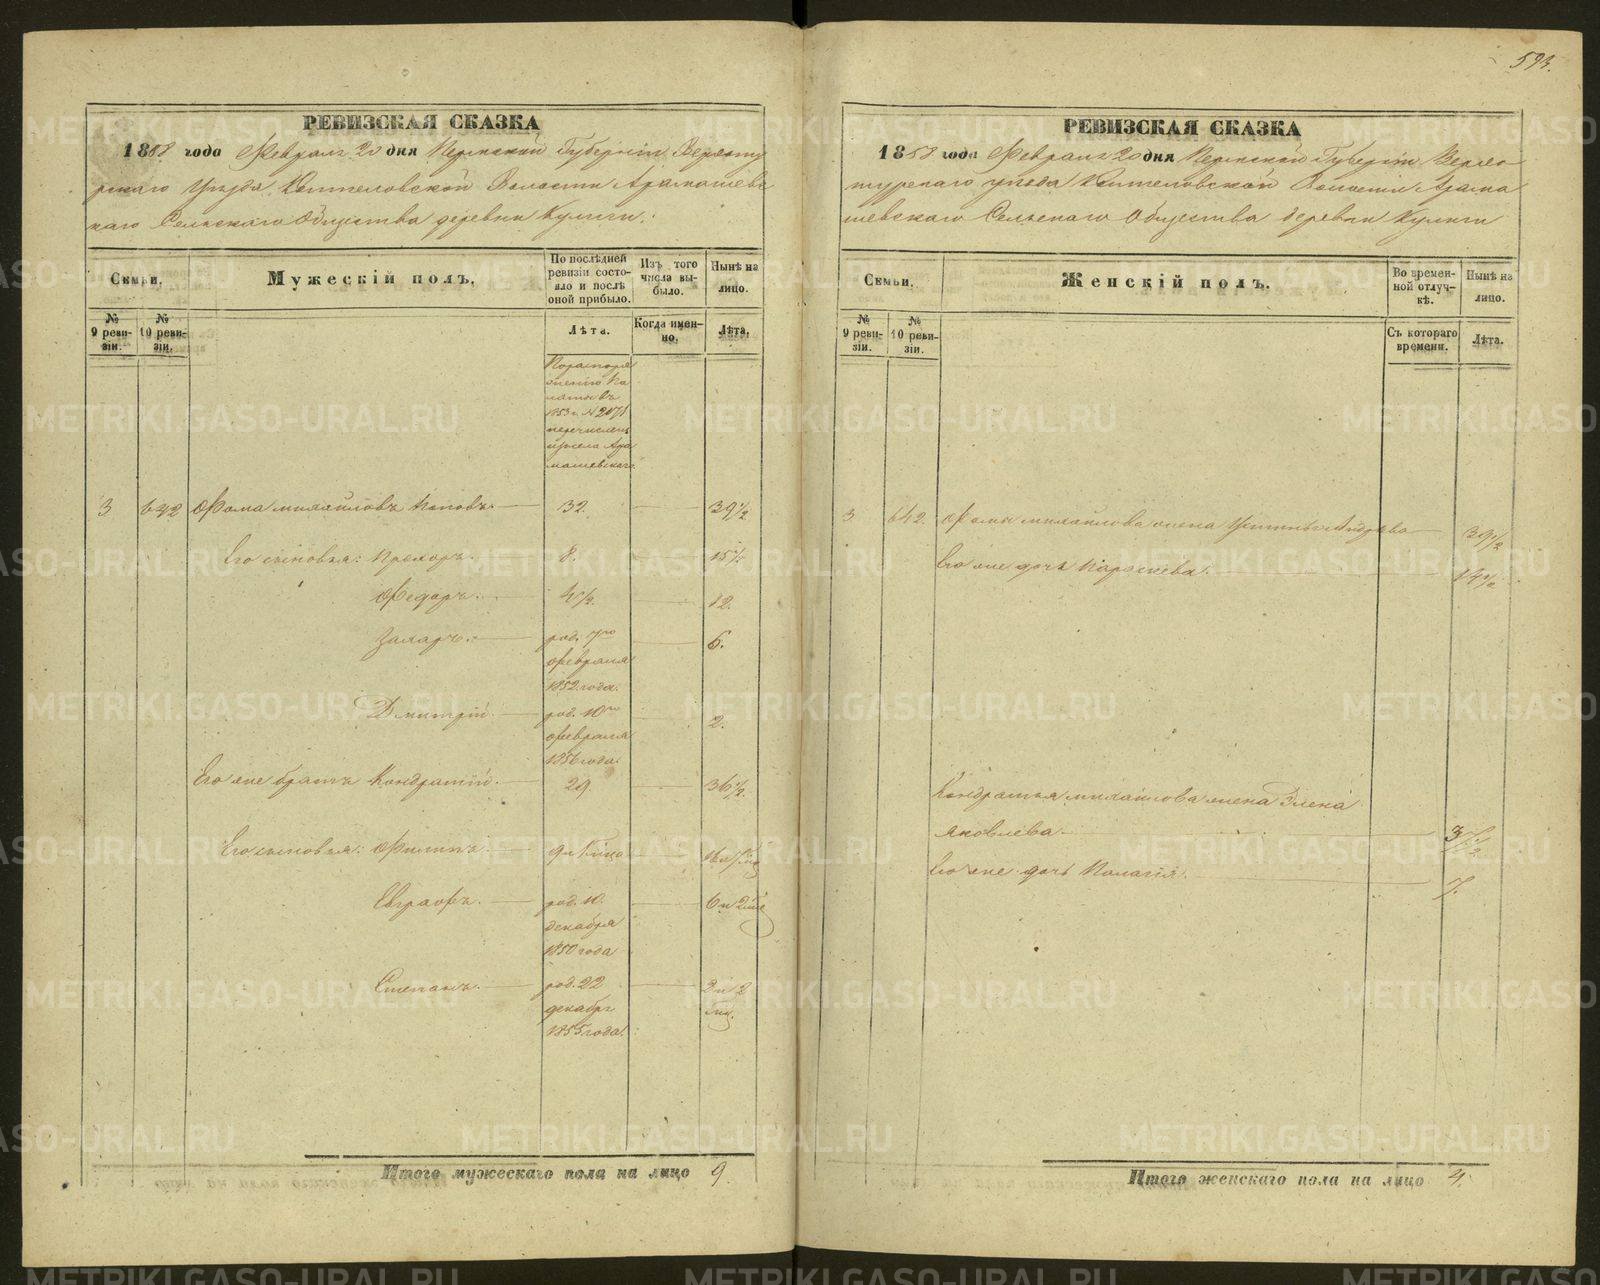 593.
РЕВИЗСКАЯ СКАЗКА
1858 года Февраля 20 дня Пермской Губернiи Верхоту
рскаго Уѣзда Коптеловской Волости Арамашевс
каго Сельскаго Общества деревни Кулиги.
Семьи.
Мужескiй полъ,
По послѣдней ревизiи состояло и послѣ оной прибыло.
Изъ того числа выбыло.
Нынѣ на лицо.
№ 9 ревизiи.
№ 10 ревизiи.
Лѣта.
Когда именно.
Лѣта.
По распоря
женiю Па
латы въ
1853 г. №
перечислен
изъ села Ара
машевскаго
3 642 Фома Михайловъ Поповъ. 32. 39 1/2
Его сыновья: Прохоръ. 8. 15 1/2
Федоръ. 4 1/2. 12.
Захаръ. род. 7го 6.
февраля
1852 года.
Дмитрiй. род. 10го 2.
февраля
1856 года.
Его же братъ Кондратiй. 29 36 1/2.
Его сыновья: Филипъ.
Евграфъ. род. 10. 6 и 2 мѣ
декабря
1850 года
Степанъ. род. 22 2 и 2
декабр мѣ.
1855 года.
Итого мужескаго пола на лицо 9.
РЕВИЗСКАЯ СКАЗКА
1858 года Февраля 20 дня Пермской Губернiи Верхо
турскаго уѣзда Коптеловской Волости Арама
шевскаго Сельскаго Общества деревни Кулиги
Семьи.
Женскiй полъ.
Во временной отлучкѣ.
Нынѣ на лицо.
№ 9 ревизiи.
№ 10 ревизiи.
Съ котораго времени.
Лѣта.
3 642. Фомы Михайлова жена Устинья 39 1/2
Его же дочь Парасковья. 14 1/2
Кондратья Михайлова жена Елена
Яковлева.
Его же дочь Палагiя. 7.
Итого женскаго пола на лицо 4.
METRIKI.GASO-URAL.RU